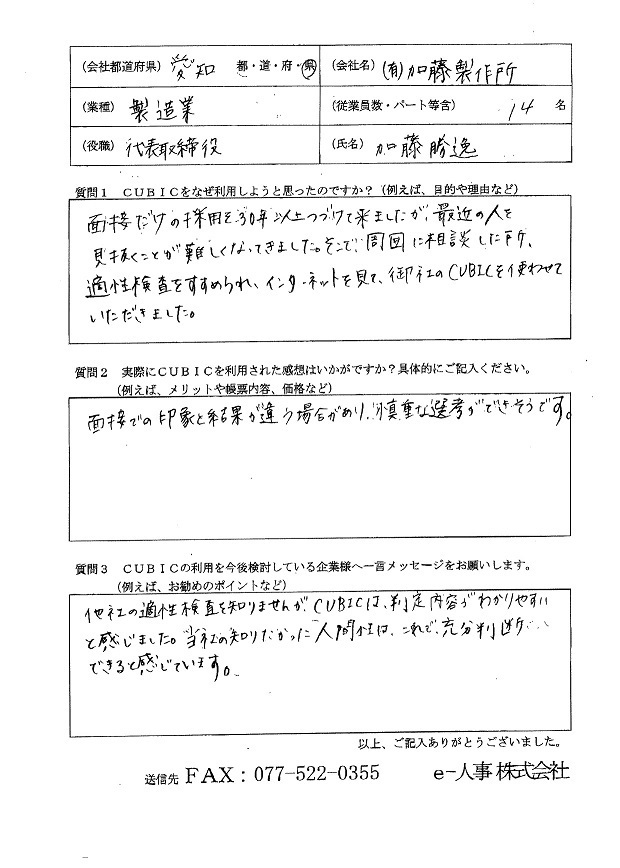 (会社都道府県) 愛知 都・道・府・県 (会社名) (有)加藤製作所
(業種) 製造業 (従業員数・パート等含) 14 名
(役職) 代表取締役 (氏名) 加藤勝逸
質問1 CUBICをなぜ利用しようと思ったのですか?(例えば、目的や理由など)
面接だけの採用を30年以上つづけて来ましたが、最近の人を
見抜くことが難しくなってきました。そこで、周囲に相談した所、
適性検査をすすめられ、インターネットを見て、御社のCUBICを使わせて
いただきました。
質問2 実際にCUBICを利用された感想はいかがですか?具体的にご記入ください。
(例えば、メリットや帳票内容、価格など)
面接での印象と結果が違う場合があり、慎重な選考ができそうです。
質問3 CUBICの利用を今後検討している企業様へ一言メッセージをお願いします。
(例えば、お勧めのポイントなど)
他社の適性検査を知りませんが、CUBICは、判定内容がわかりやすい
と感じました。当社の知りたかった「人間性は、これで、充分判断
できると感じています。
以上、ご記入ありがとうございました。
送信先 FAX:077-522-0355 e-人事株式会社